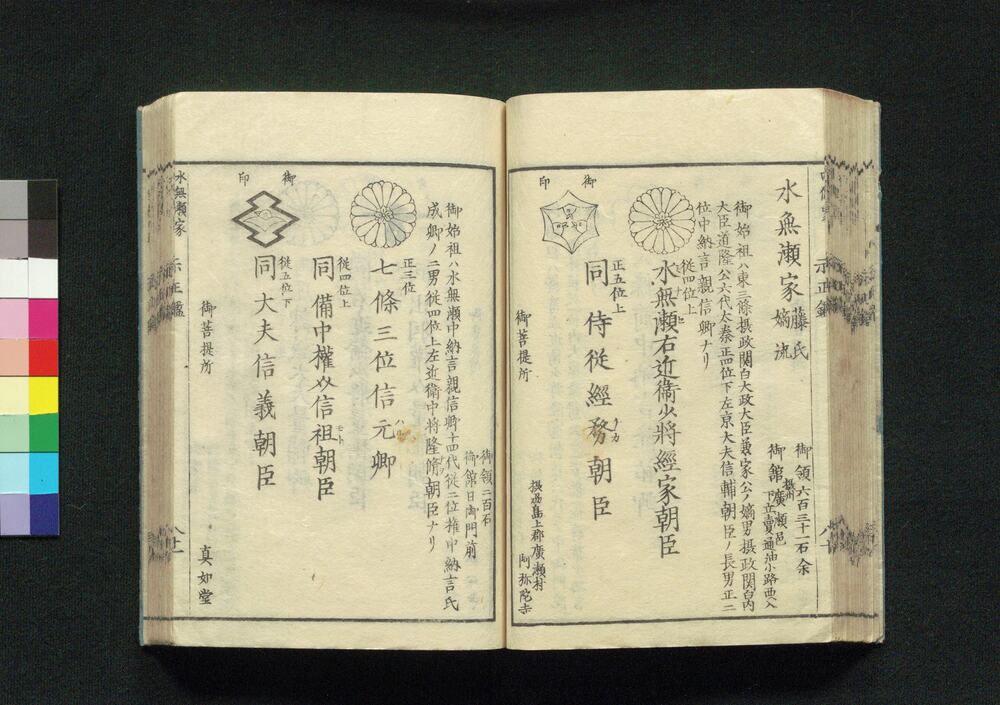 水無瀬家 藤氏 嫡流
御領六百三十一石余
御館 摂州廣瀬邑
下立賣通油小路西入
御始祖ハ東三條摂政関白大政大臣兼家公ノ嫡男摂政関白内
大臣道隆公六代太秦正四位下左京大夫信輔朝臣ノ長男正二
位中納言親信卿ナリ
御印
従四位上
水無瀬右近衛少将經家朝臣
正五位上
同 侍従經務朝臣
御菩提所
摂州島上郡廣瀬村
阿弥陀寺
八十
御領二百石
御館日御門前
御始祖ハ水無瀬中納言親信卿十四代従二位権中納言氏
成卿ノ二男従四位上左近衛中将隆脩朝臣ナリ
御印
正三位
七條三位信元卿
従四位上
同 備中權介信祖朝臣
従五位下
同 大夫信義朝臣
御菩提所
真如堂
水無瀬家